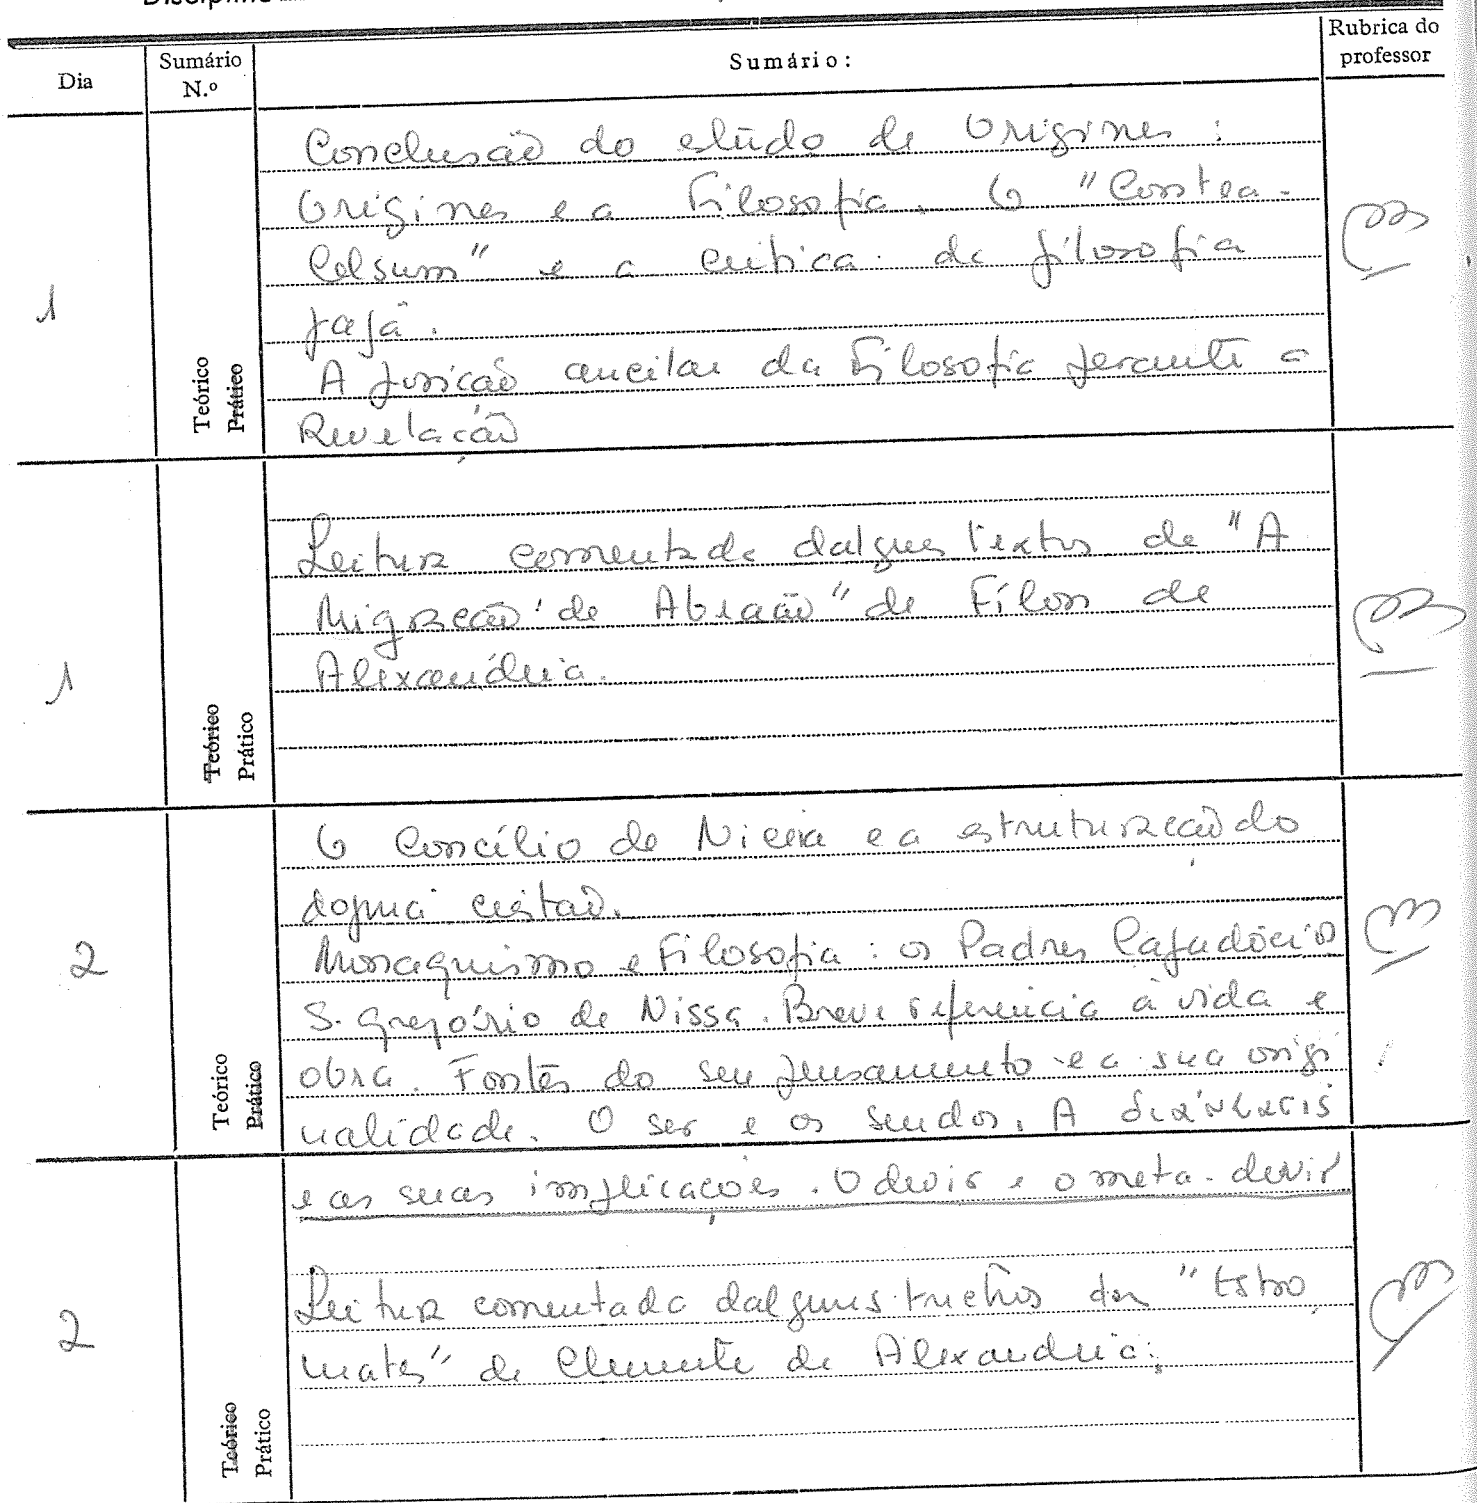 Disciplina
Dia
Sumário
N.º
Sumário:
Rubrica do
professor
1
Teórico
Prático
Conclusão do estudo de Orígines:
Orígines e a Filosofia. O "Contra-
Celsum" e a crítica da filosofia
pagã.
A função ancilar da Filosofia perante a
Revelação
1
Teórico
Prático
Leitura comentada dalguns textos de "A
Migração de Abraão" de Fílon de
Alexandria.
2
Teórico
Prático
O Concílio de Niceia e a estruturação do
dogma cristão.
Monaquismo e Filosofia: os Padres Capadócios
S. Gregório de Nissa. Breve referência à vida e
obra. Fontes do seu pensamento e a sua origi
nalidade. O ser e os sendos. A
e as suas implicações. O devir e o meta-devir
2
Teórico
Prático
Leitura comentada dalguns trechos dos "Estro
mates" de Clemente de Alexandria.